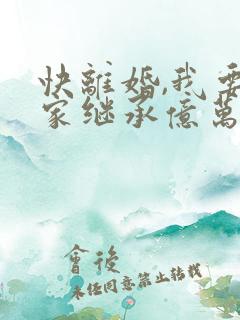 快離婚,我要
家继承億萬
會後
未任同意禁止转载